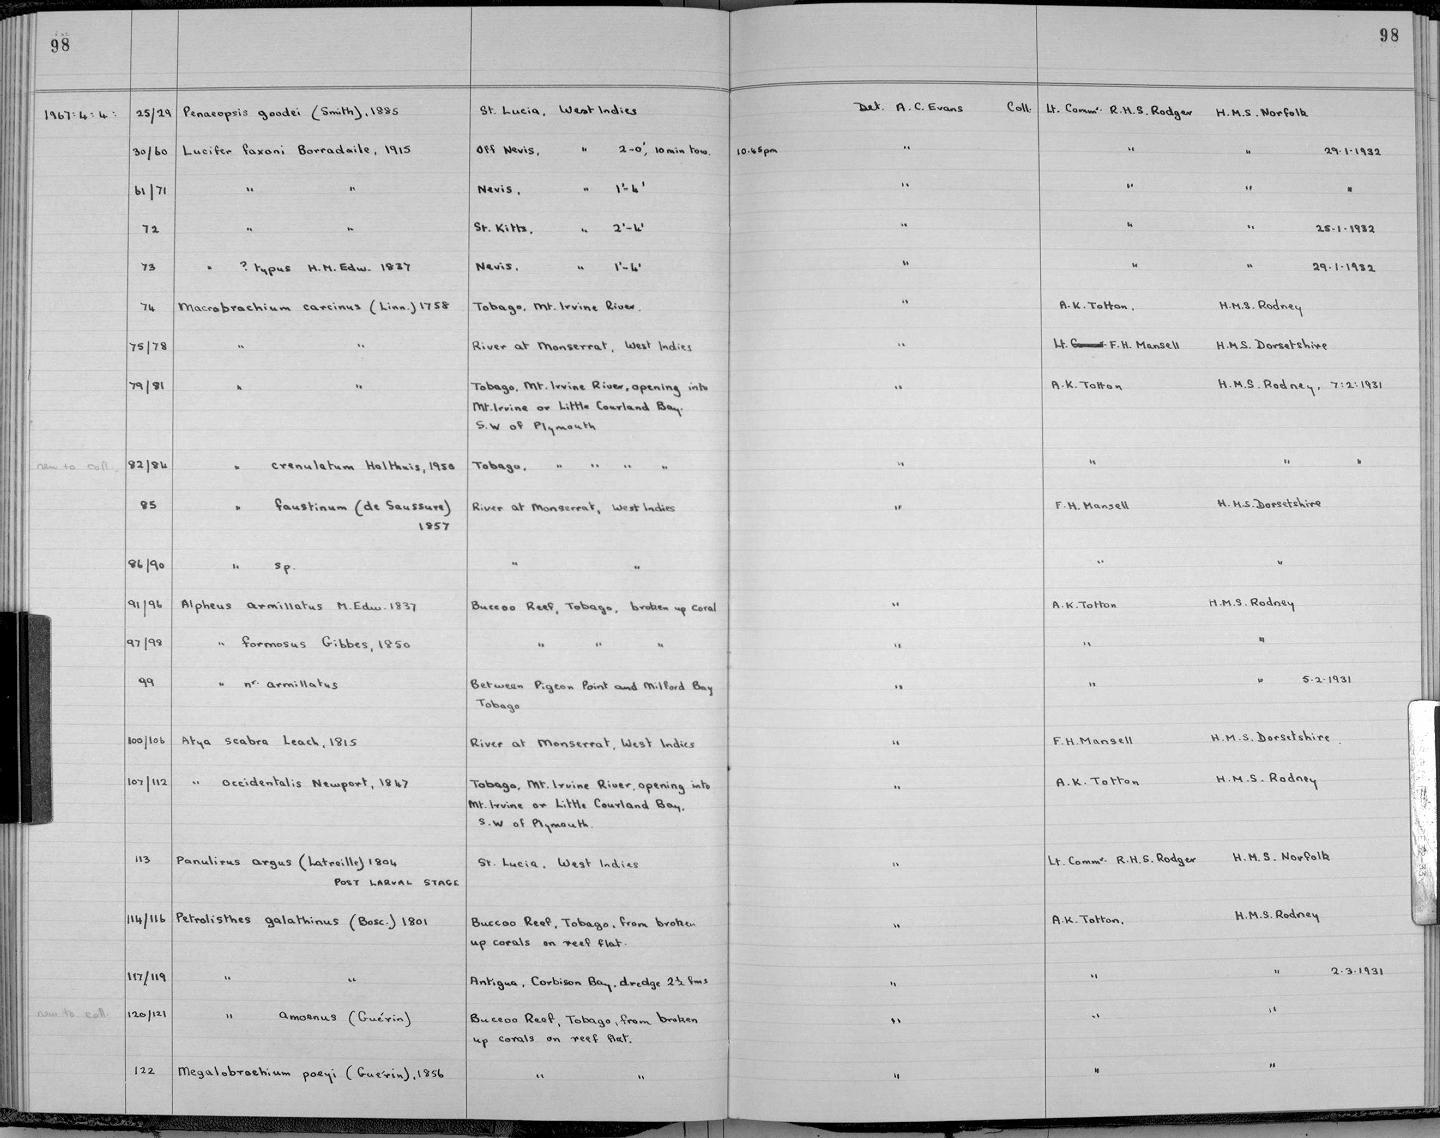 98 98
1967:4:4: 25/29 Penaeopsis goodei (Smith), 1885 St. Lucia, West Indies Det. A.C. Evans Coll. Lt. Commr. R.H.S. Rodger H.M.S. Norfolk
30/60 Lucifer faxoni Borradaile, 1915 Off Nevis, " 2-0', 10 min tow. 10.45pm " " " 29.1.1932
61/71 " " Nevis, " 1'-4' " " " "
72 " " St. Kitts, " 2'-4' " " " 25.1.1932
73 " ? typus H.M. Edw. 1837 Nevis, " 1'-4' " " " 29.1.1932
74 Macrobrachium carcinus (Linn.) 1758 Tobago, Mt. Irvine River. " A.K. Totton. H.M.S. Rodney
75/78 " " River at Monserrat, West Indies " Lt. F.H. Mansell H.M.S. Dorsetshire
79/81 " " Tobago, Mt. Irvine River, opening into " A.K. Totton H.M.S. Rodney, 7:2:1931
Mt. Irvine or Little Courland Bay.
S.W of Plymouth
new to coll. 82/84 " crenulatum Holthuis, 1950 Tobago, " " " " " " " "
85 " faustinum (de Saussure) River at Monserrat, West Indies " F.H. Mansell H.M.S. Dorsetshire
1857
86/90 " sp. " " " "
91/96 Alpheus armillatus M. Edw. 1837 Buccoo Reef, Tobago, broken up coral " A.K. Totton H.M.S. Rodney
97/98 " formosus Gibbes, 1850 " " " " " "
99 " nr. armillatus Between Pigeon Point and Milford Bay " " " 5.2.1931
Tobago
100/106 Atya scabra Leach, 1815 River at Monserrat, West Indies " F.H. Mansell H.M.S. Dorsetshire.
107/112 " occidentalis Newport, 1847 Tobago, Mt. Irvine River, opening into " A.K. Totton H.M.S. Rodney
Mt. Irvine or Little Courland Bay,
S.W of Plymouth.
113 Panulirus argus (Latreille) 1804 St. Lucia, West Indies " Lt. Commr. R.H.S. Rodger H.M.S. Norfolk
POST LARVAL STAGE
114/116 Petrolisthes galathinus (Bosc.) 1801 Buccoo Reef, Tobago, from broken " A.K. Totton. H.M.S. Rodney
up corals on reef flat.
117/119 " " Antigua, Corbison Bay, dredge 2½ fms " " " 2.3.1931
new to coll. 120/121 " amoenus (Guérin) Buccoo Reef, Tobago, from broken " " "
up corals on reef flat.
122 Megalobrachium poeyi (Guérin), 1856 " " " " "